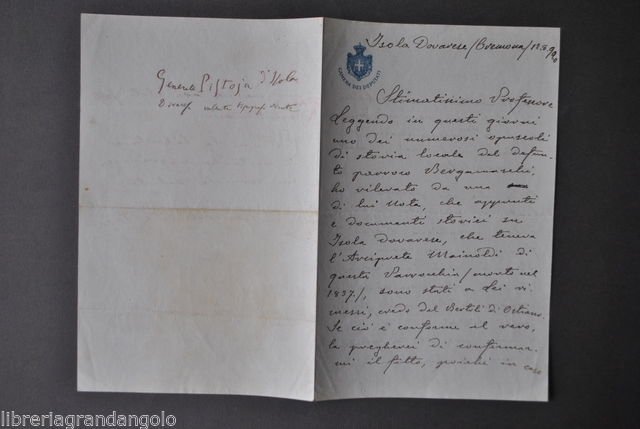 Generale Pistoja d'Isola
Isola Dovarese/Cremona/12.3.9
CAMERA DEI DEPUTATI
Stimatissimo Professore
Leggendo in questi giorni
uno dei numerosi opuscoli
di storia locale del defun-
to parroco Bergamaschi,
ho rilevato da una
di lui Nota, che appunti
e documenti storici su
Isola Dovarese, che teneva
l'Arciprete Mainoldi di
questa Parrocchia/morto nel
1837/, sono stati a Lei ri-
messi, credo dal Bertoli di Ostiano.
Se ciò è conforme il vero,
la pregherei di confermar-
mi il fatto, poiché in caso
libreriagrandangolo